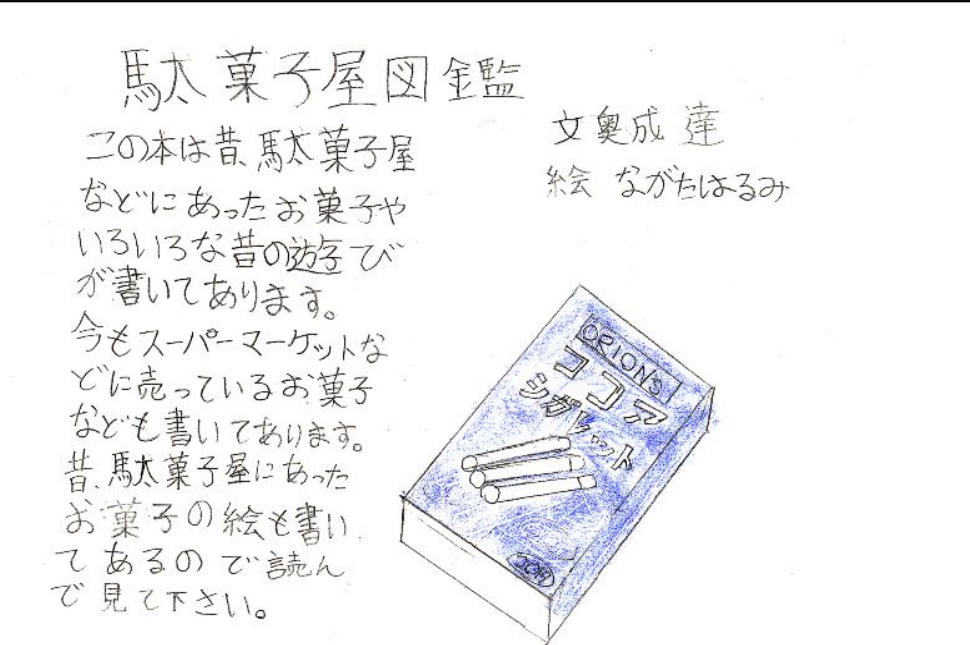 駄菓子屋図鑑
文 奥成 達
絵 ながたはるみ
この本は昔、駄菓子屋
などにあったお菓子や
いろいろな昔の遊び
が書いてあります。
今もスーパーマーケットな
どに売っているお菓子
なども書いてあります。
昔、駄菓子屋にあった
お菓子の絵も書い
てあるので読ん
で見て下さい。
ORIONS
ココア
シガレット